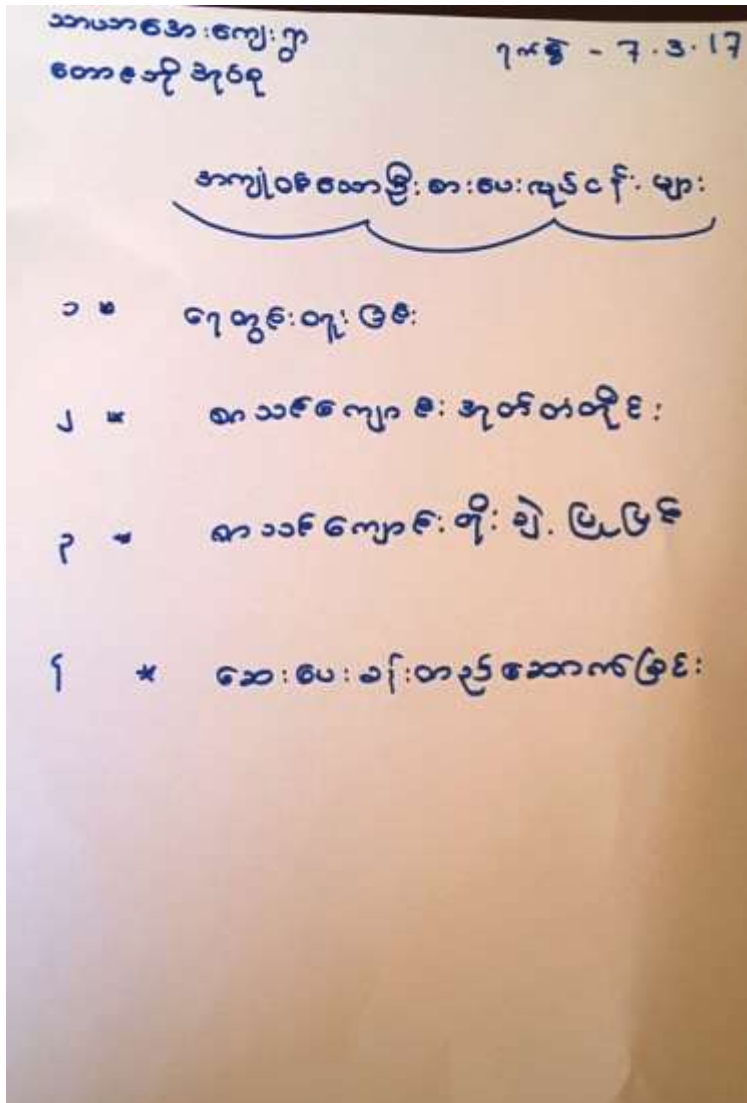 သာယာအေးကျေးရွာ
ရက်စွဲ - 7.3.17
တောင်ဘို အုပ်စု
အကျုံးဝင်သောဦးစားပေးလုပ်ငန်းများ
၁ * ရေတွင်းတူးခြင်း
၂ * စာသင်ကျောင်းအုတ်တံတိုင်း
၃ * စာသင်ကျောင်းတိုးချဲ့ပြုပြင်
၄ * ဆေးပေးခန်းတည်ဆောက်ခြင်း